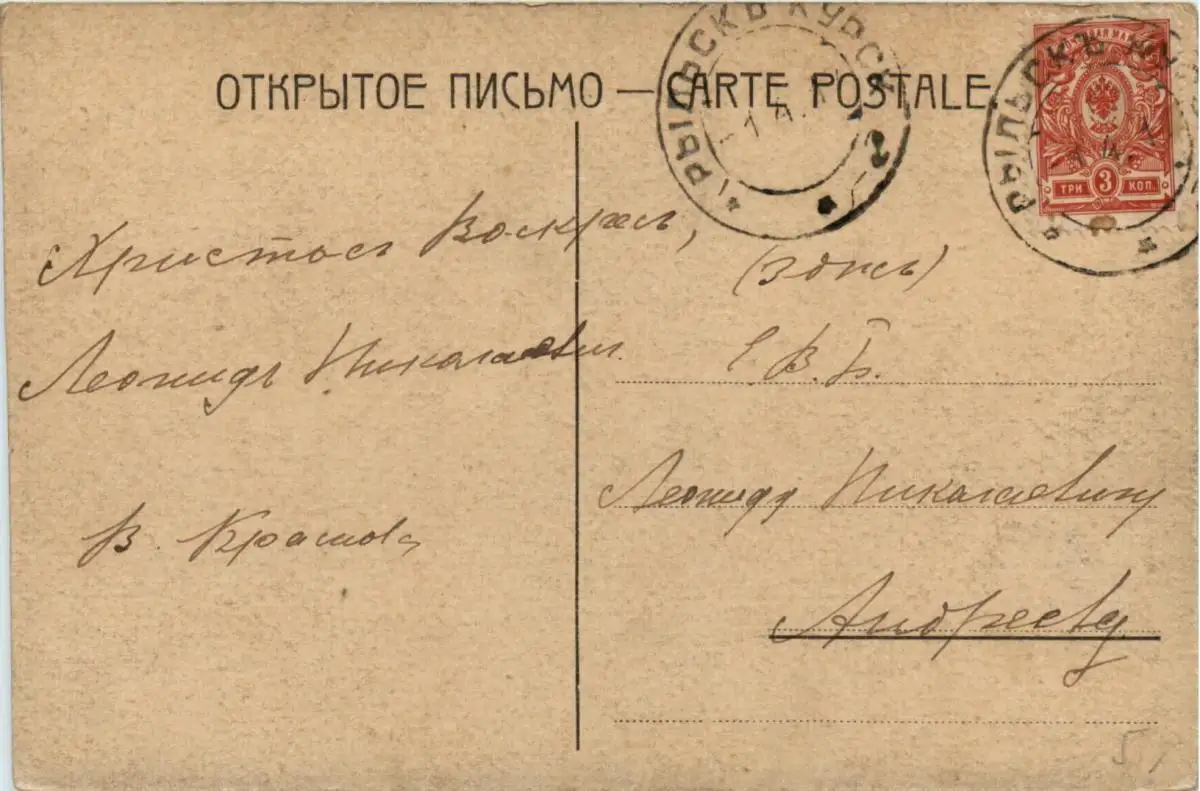 ОТКРЫТОЕ ПИСЬМО — CARTE POSTALE
РЫЛЬСКЪ КУРСК
1 4
РЫЛЬСКЪ КУ
1 4 1
ТРИ 3 КОП.
Христосъ Воскресъ,
Леонидъ Николаевич.
В. Крашова
(здѣсь)
Е. В. Б.
Леониду Николаевичу
Андрееву